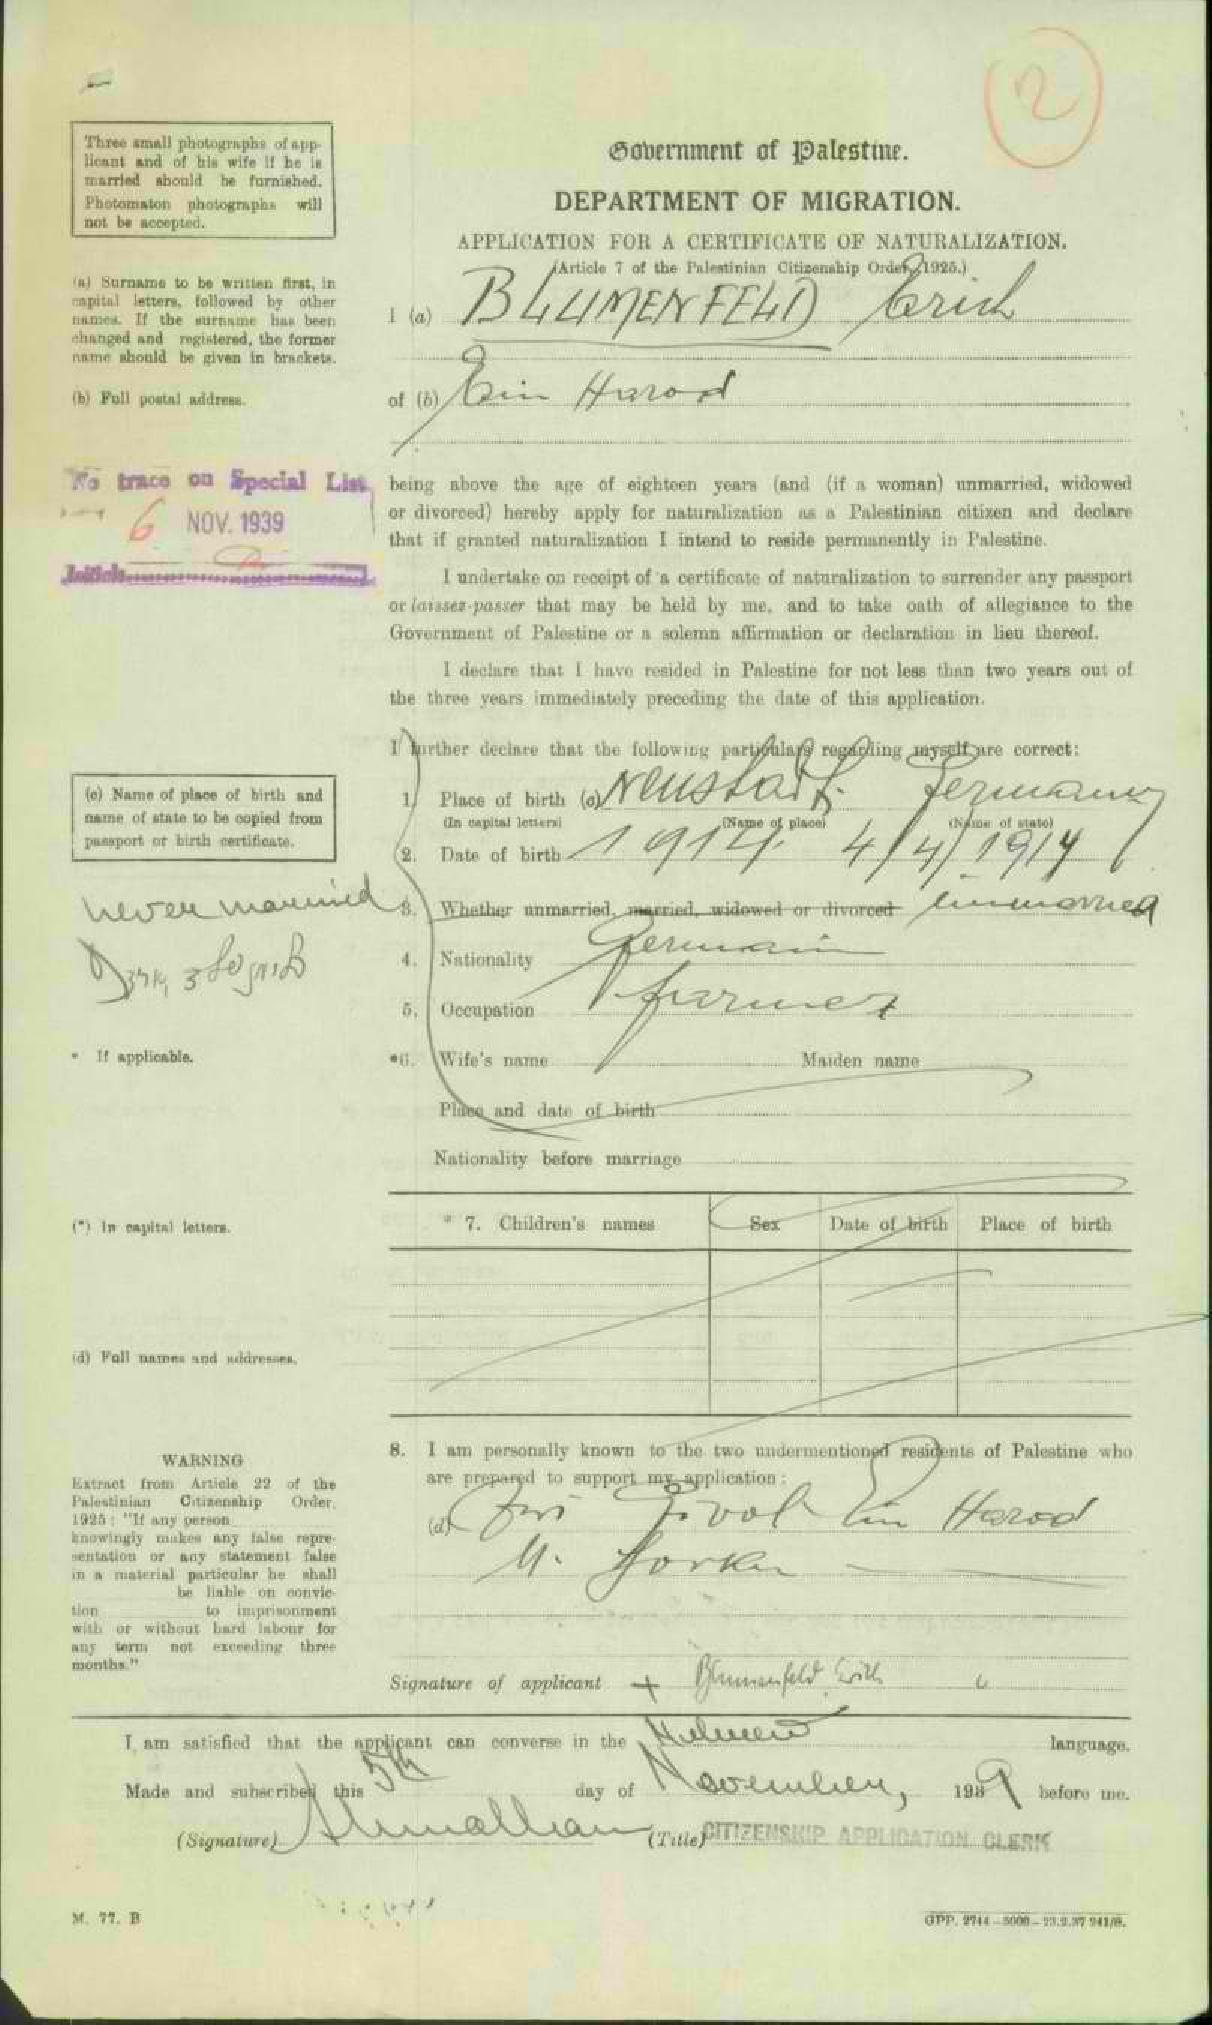 2
Three small photographs of app-
licant and of his wife if he is
married should be furnished.
Photomaton photographs will
not be accepted.
Government of Palestine.
DEPARTMENT OF MIGRATION.
APPLICATION FOR A CERTIFICATE OF NATURALIZATION.
(Article 7 of the Palestinian Citizenship Order, 1925.)
(a) Surname to be written first, in
capital letters, followed by other
names. If the surname has been
changed and registered, the former
name should be given in brackets.
I (a) BLUMENFELD Erich
(b) Full postal address.
of (b) Ein Harod
No trace on Special List
6 NOV. 1939
Initials
being above the age of eighteen years (and (if a woman) unmarried, widowed
or divorced) hereby apply for naturalization as a Palestinian citizen and declare
that if granted naturalization I intend to reside permanently in Palestine.
I undertake on receipt of a certificate of naturalization to surrender any passport
or laissez-passer that may be held by me, and to take oath of allegiance to the
Government of Palestine or a solemn affirmation or declaration in lieu thereof.
I declare that I have resided in Palestine for not less than two years out of
the three years immediately preceding the date of this application.
I further declare that the following particulars regarding myself are correct:
(c) Name of place of birth and
name of state to be copied from
passport or birth certificate.
1. Place of birth (c) Neustadt. Germany
(In capital letters) (Name of place) (Name of state)
2. Date of birth 1914. 4/4/1914
never married
3. Whether unmarried, married, widowed or divorced unmarried
4. Nationality German
5. Occupation farmer
* If applicable.
*6. Wife's name Maiden name
Place and date of birth
Nationality before marriage
(*) In capital letters.
* 7. Children's names Sex Date of birth Place of birth
(d) Full names and addresses.
8. I am personally known to the two undermentioned residents of Palestine who
are prepared to support my application:
(d) Ein Harod
M.
WARNING
Extract from Article 22 of the
Palestinian Citizenship Order,
1925: "If any person
knowingly makes any false repre-
sentation or any statement false
in a material particular he shall
be liable on convic-
tion to imprisonment
with or without hard labour for
any term not exceeding three
months."
Signature of applicant + Blumenfeld Erich
I am satisfied that the applicant can converse in the Hebrew language.
Made and subscribed this 5th day of November, 1939 before me.
(Signature) (Title) CITIZENSHIP APPLICATION CLERK
M. 77. B
GPP. 2744-5000-23.2.37 241/8.